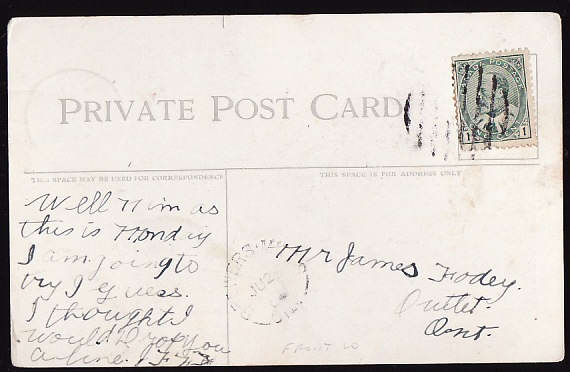 CANADA POSTAGE
1 1
PRIVATE POST CARD
THIS SPACE MAY BE USED FOR CORRESPONDENCE
THIS SPACE IS FOR ADDRESS ONLY
Well Jim as
this is Monday
I am going to
try I guess.
I thought I
would Drop you
a line. J.F.
Mr James Fodey.
Outlet.
Ont.